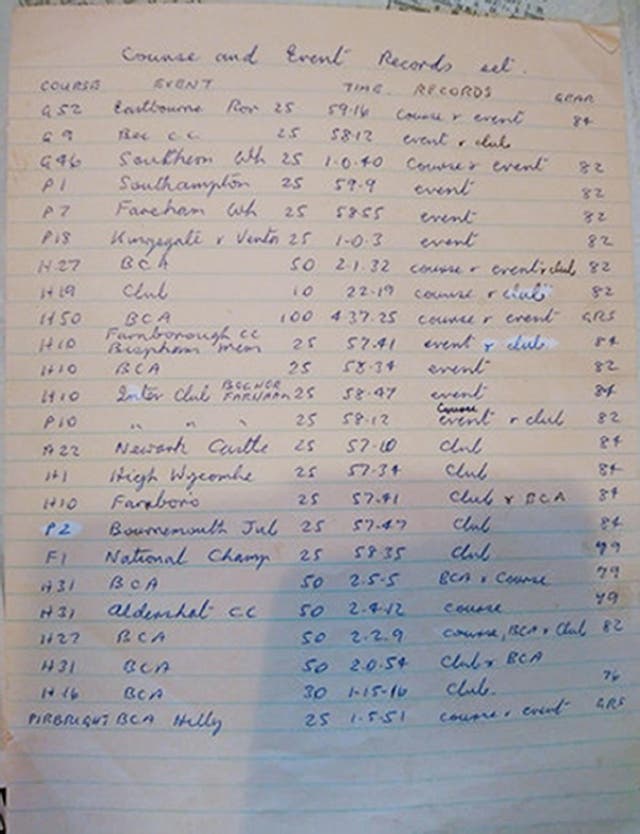 Course and Event Records set.
COURSE EVENT TIME RECORDS GEAR
G52 Eastbourne Rov 25 59.16 course & event 84
G9 Bec C.C. 25 58.12 event & club
G46 Southern Wh 25 1-0.40 Course & event 82
P1 Southampton 25 59.9 event 82
P7 Fareham Wh 25 58.55 event 82
P18 Kingsgate & Ventor 25 1-0.3 event 82
H.27 BCA 50 2.1.32 course & event & club 82
H19 Club 10 22.19 course & club 82
H50 BCA 100 4 37.25 course & event GRS
H10 Farnborough CC
Bispham Mem 25 57.41 event & club 84
H10 BCA 25 58.34 event 82
H10 Inter Club BOGNOR FARNHAM 25 58.47 event 84
P10 " " " 25 58.12 Course event & club 82
A22 Newark Castle 25 57-10 Club 84
H1 High Wycombe 25 57.34 Club 84
H10 Farnboro 25 57.41 Club & BCA 84
P2 Bournemouth Jub 25 57.47 Club 84
F1 National Champ 25 58.35 Club 79
H31 BCA 50 2.5-5 BCA & Course 79
H31 Aldershot CC 50 2.4.12 course 79
H27 BCA 50 2.2.9 course, BCA & Club 82
H31 BCA 50 2.0.54 Club & BCA
H.16 BCA 30 1-15-16 Club. 76
PIRBRIGHT BCA Hilly 25 1.5.51 course & event GRS